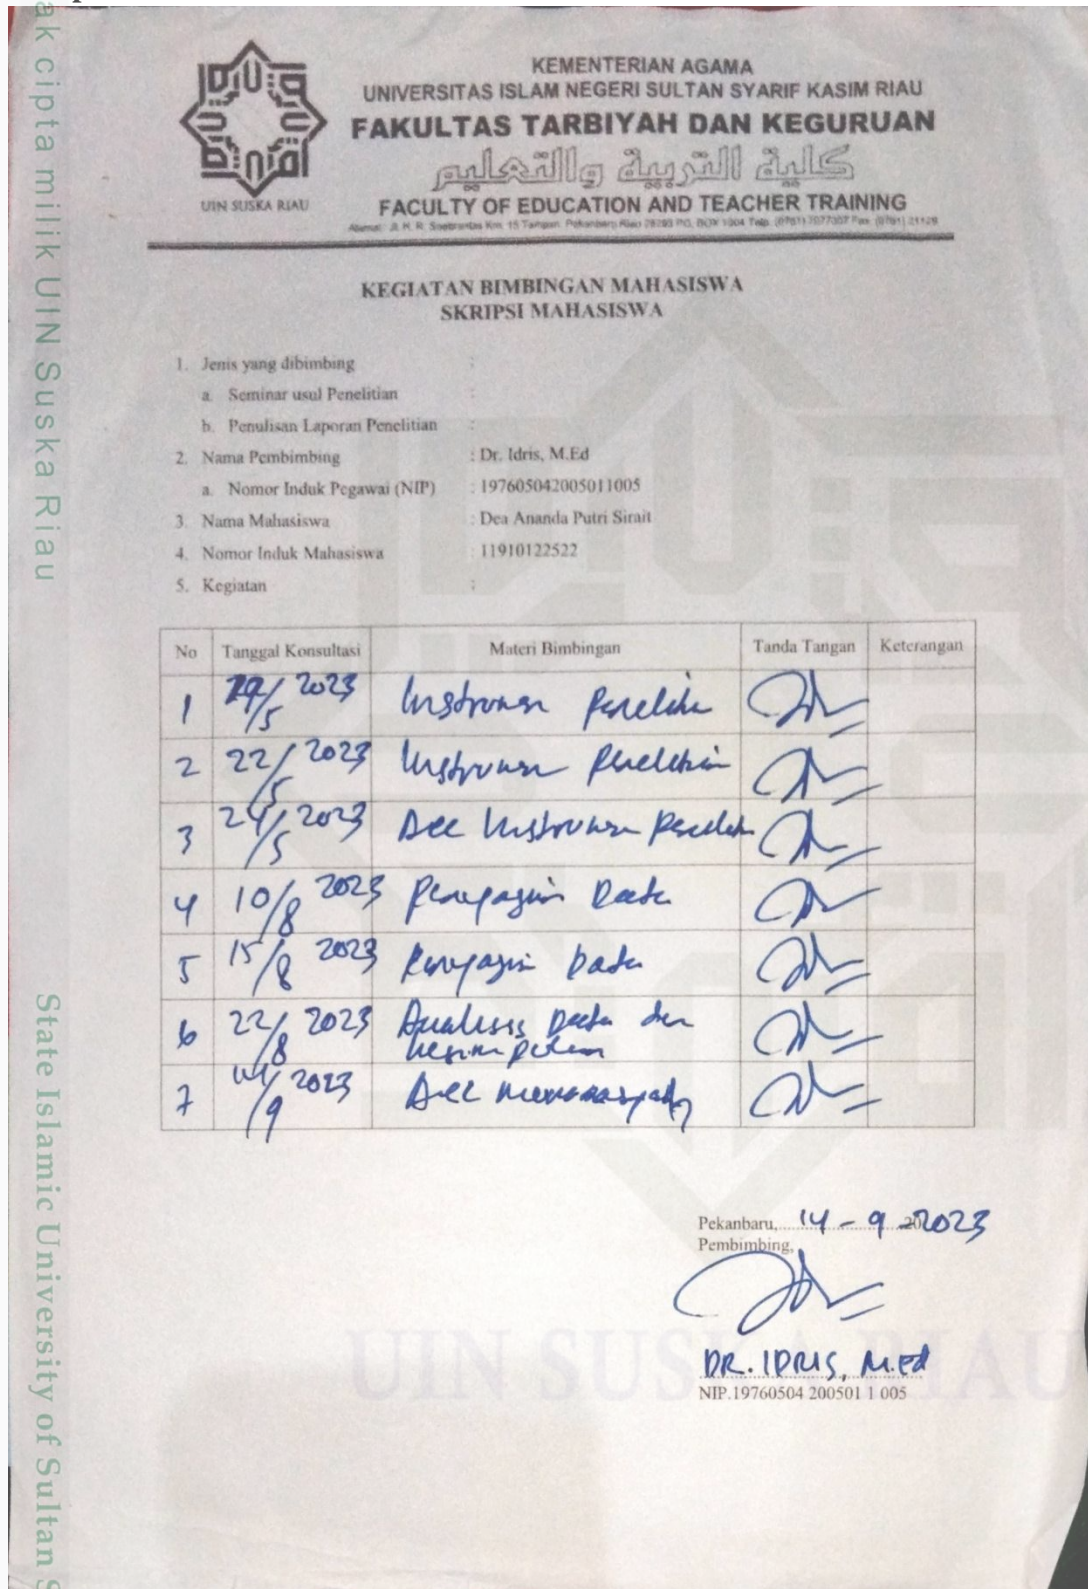 ak cipta milik UIN Suska Riau
State Islamic University of Sultan S
UIN SUSKA RIAU
KEMENTERIAN AGAMA
UNIVERSITAS ISLAM NEGERI SULTAN SYARIF KASIM RIAU
FAKULTAS TARBIYAH DAN KEGURUAN
كلية التربية والتعليم
FACULTY OF EDUCATION AND TEACHER TRAINING
Alamat: Jl. H. R. Soebrantas Km. 15 Tampan Pekanbaru Riau 28293 PO. BOX 1004 Telp. (0761) 7077307 Fax. (0761) 21129
KEGIATAN BIMBINGAN MAHASISWA
SKRIPSI MAHASISWA
1. Jenis yang dibimbing :
a. Seminar usul Penelitian :
b. Penulisan Laporan Penelitian :
2. Nama Pembimbing : Dr. Idris, M.Ed
a. Nomor Induk Pegawai (NIP) : 197605042005011005
3. Nama Mahasiswa : Dea Ananda Putri Sirait
4. Nomor Induk Mahasiswa : 11910122522
5. Kegiatan :
No Tanggal Konsultasi Materi Bimbingan Tanda Tangan Keterangan
1 /5 2023 Instrumen Penelitian
2 22/5 2023 Instrumen Penelitian
3 24/5 2023 Acc Instrumen Penelitian
4 10/8 2023 Penyajian Data
5 15/8 2023 Penyajian Data
6 22/8 2023 Analisis Data dan
kesimpulan
7 14/9 2023 Acc munaqasyah
Pekanbaru, 14 - 9 - 20 2023
Pembimbing,
DR. IDRIS, M.Ed
NIP.19760504 200501 1 005
UIN SUSKA RIAU